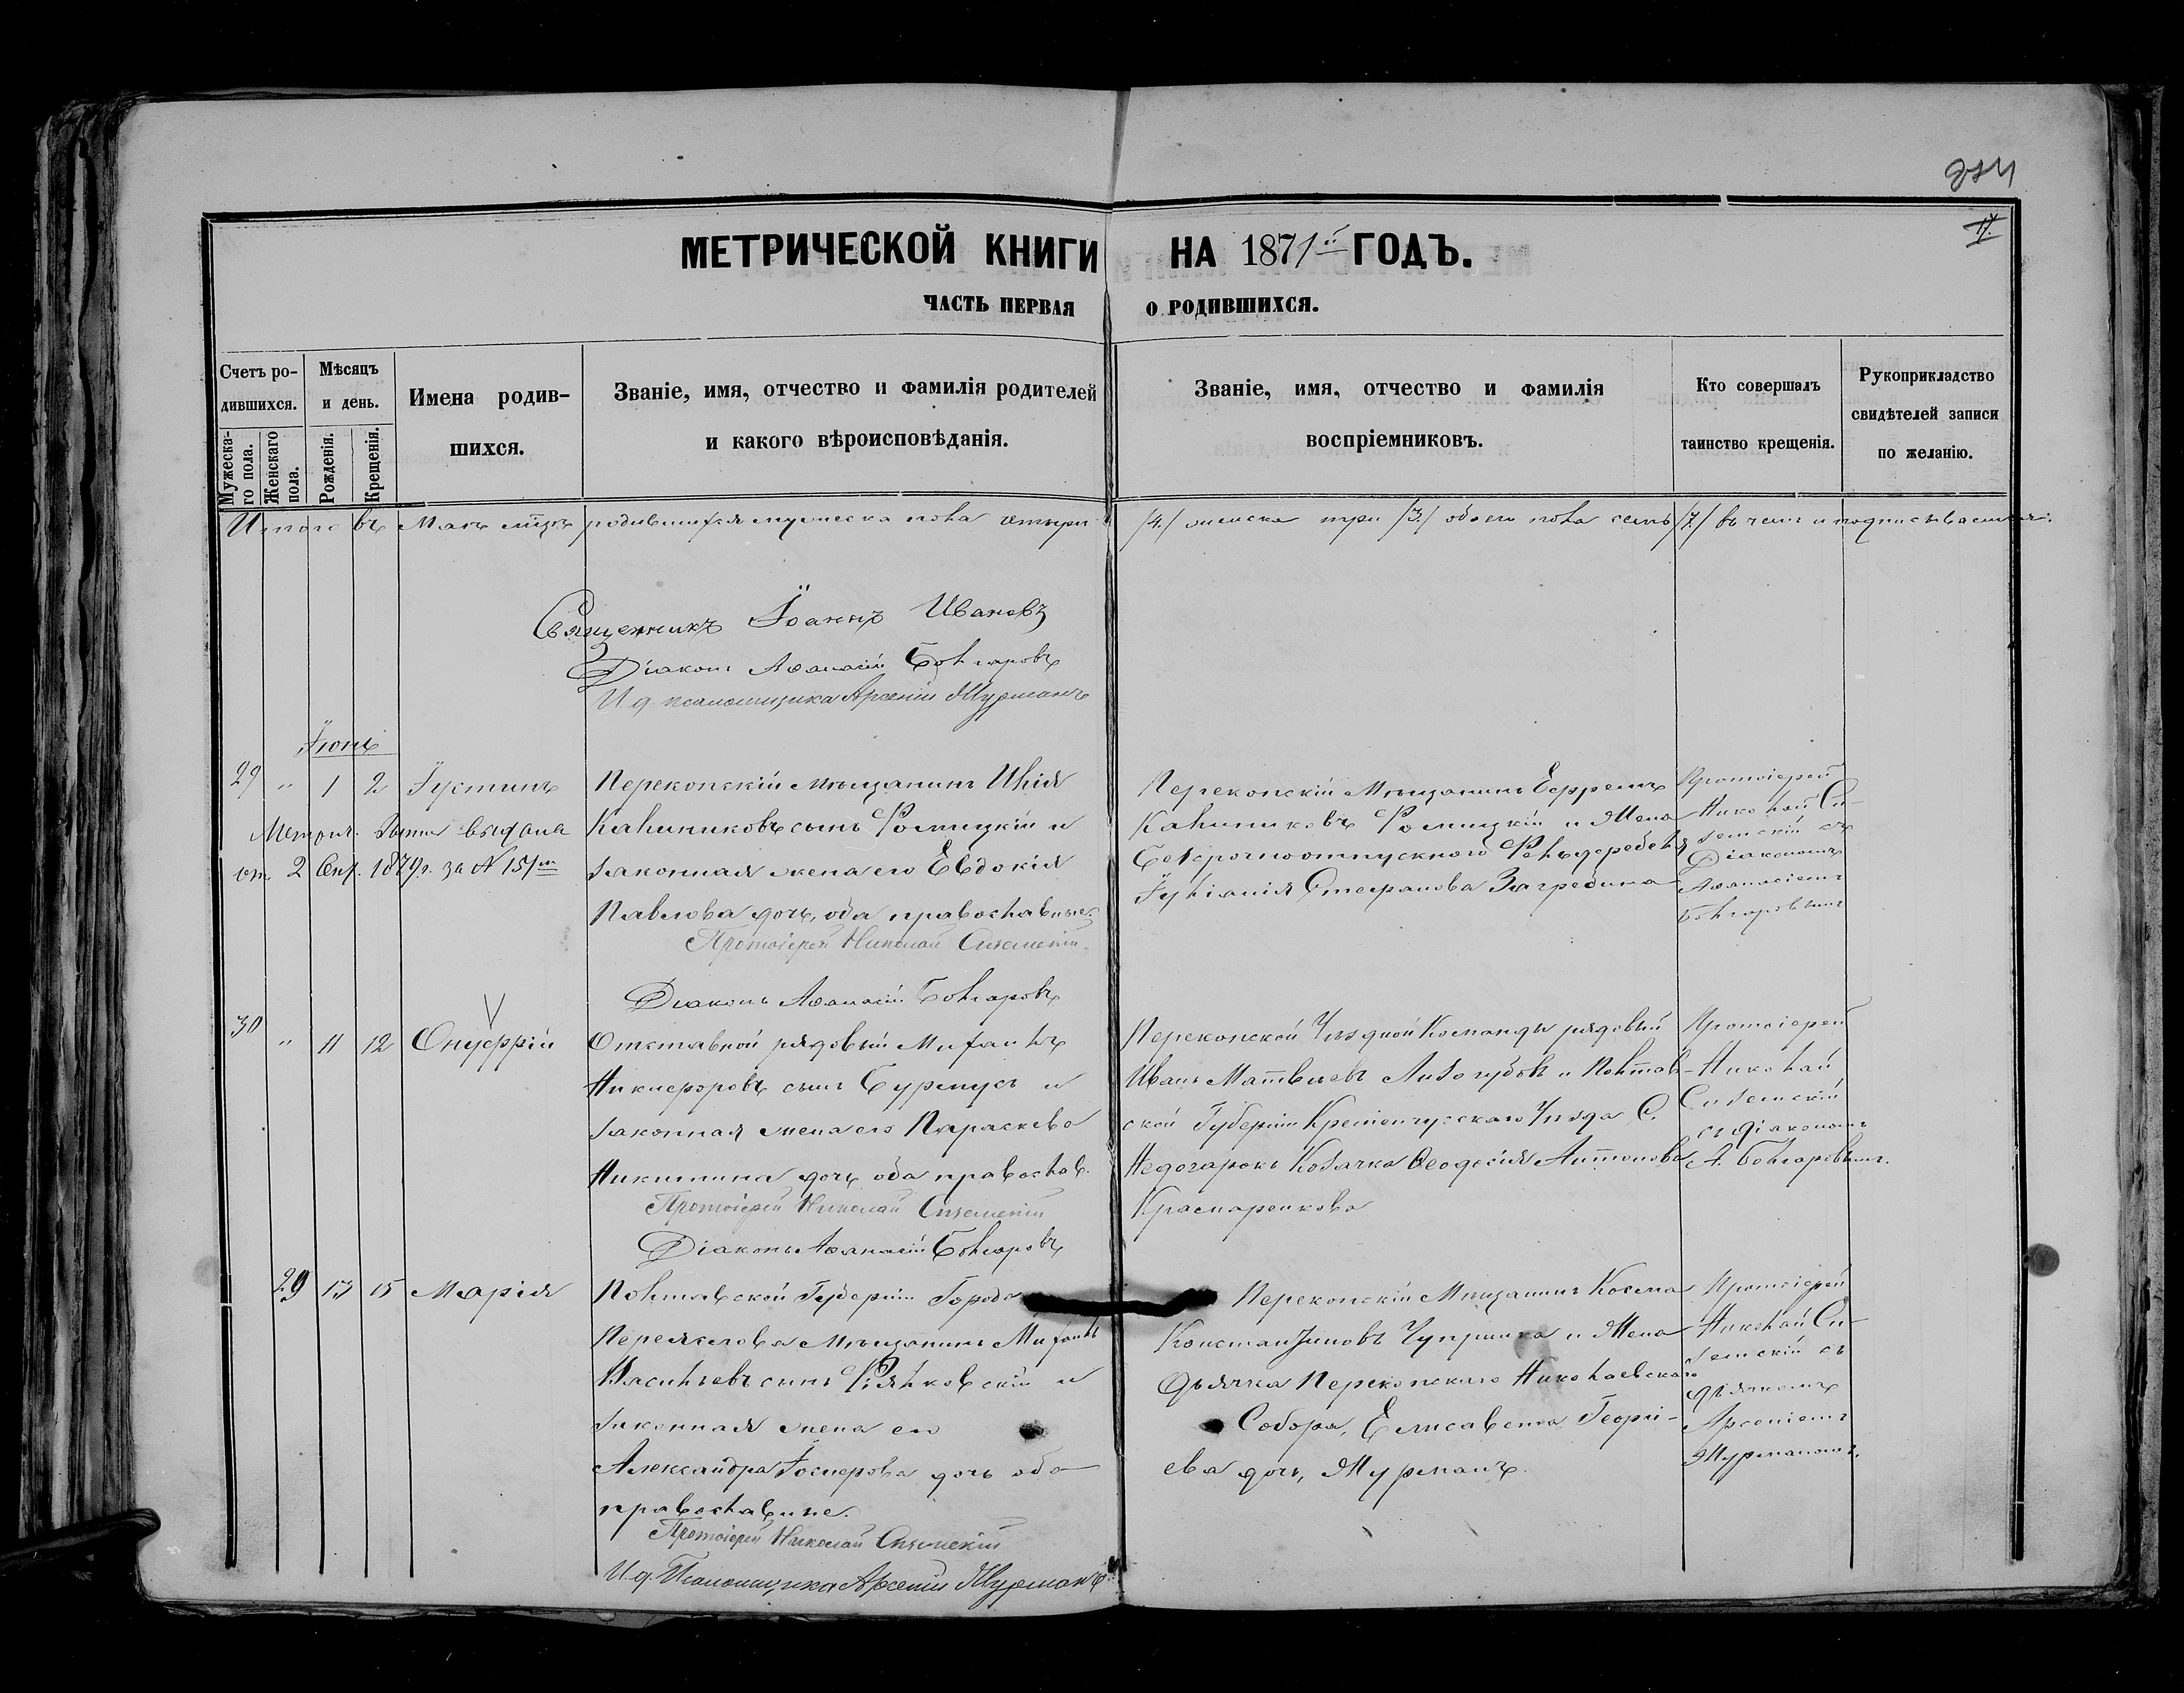 284
17.
МЕТРИЧЕСКОЙ КНИГИ НА 1871й ГОДЪ.
ЧАСТЬ ПЕРВАЯ О РОДИВШИХСЯ.
Счетъ родившихся.
Мужескаго пола.
Женскаго пола.
Мѣсяцъ и день.
Рожденія.
Крещенія.
Имена родившихся.
Званіе, имя, отчество и фамилія родителей
и какого вѣроисповѣданія.
Званіе, имя, отчество и фамилія
воспріемниковъ.
Кто совершалъ
таинство крещенія.
Рукоприкладство
свидѣтелей записи
по желанію.
Итого въ Маѣ мцѣ родившихся мужеска пола четыри /4./ женска три /3./ обоего пола семь /7./ въ чемъ и подписываемся:
Священникъ Іоаннъ Ивановъ
Діаконъ Аѳанасій Болгаровъ
И. д. псаломщика Арсеній Мурманъ
Іюнь
29 " 1 2 Іустинъ
Метрич. выдана
2 Сент. 1879г. за N 151м
Перекопскій мѣщанинъ Илія
Калиниковъ сынъ Ромицкій и
законная жена его Евдокія
Павлова дочь, оба православные.
Протоіерей Николай Сиземскій
Діаконъ Аѳанасій Болгаровъ
Перекопскій Мѣщанинъ Ефремъ
Калиниковъ Ромицкій и Жена
Безсрочноотпускного
Іуліанія Стефанова Загребина
Протоіерей
Николай Си-
земскій съ
Діакономъ
Аѳанасіемъ
Болгаровымъ
30 " 11 12 Онуфрій
Отставной рядовый Михаилъ
Никифоровъ сынъ Бурмусъ и
законная жена его Параскева
Никитина дочь оба православ.
Протоіерей Николай Сиземскій
Діаконъ Аѳанасій Болгаровъ
Перекопской Уѣздной Команды рядовый
Иванъ Матвѣевъ Лизогубовъ и Полтав-
ской Губерніи Кременчугскаго Уѣзда С.
Недогарокъ Козачка Ѳеодосія Антонова
Краснаренкова
Протоіерей
Николай
Сиземскій
съ діакономъ
А. Болгаровымъ.
29 13 15 Марія
Полтавской Губерніи Города
Переяслова Мѣщанинъ Михаилъ
Васильевъ сынъ
законная жена его
Александра Іосифова дочь оба
православные.
Протоіерей Николай Сиземскій
И. д. Псаломщика Арсеній Мурманъ
Перекопскій Мѣщанинъ Косма
Константиновъ Чупринка и Жена
дьячка Перекопскаго Николаевскаго
Собора, Елисавета Георгі-
ева дочь, Мурманъ.
Протоіерей
Николай Си-
земскій съ
дьячкомъ
Арсеніемъ
Мурманомъ.